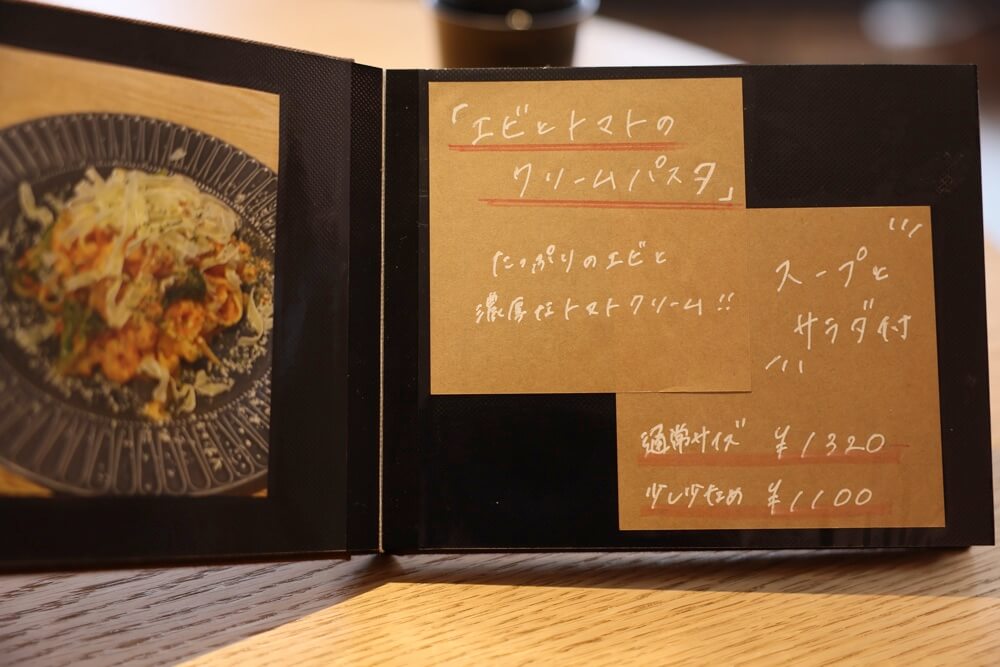 「エビとトマトの
クリームパスタ」
たっぷりのエビと
濃厚なトマトクリーム!!
スープと
サラダ付
通常サイズ ¥1320
少し少なめ ¥1100